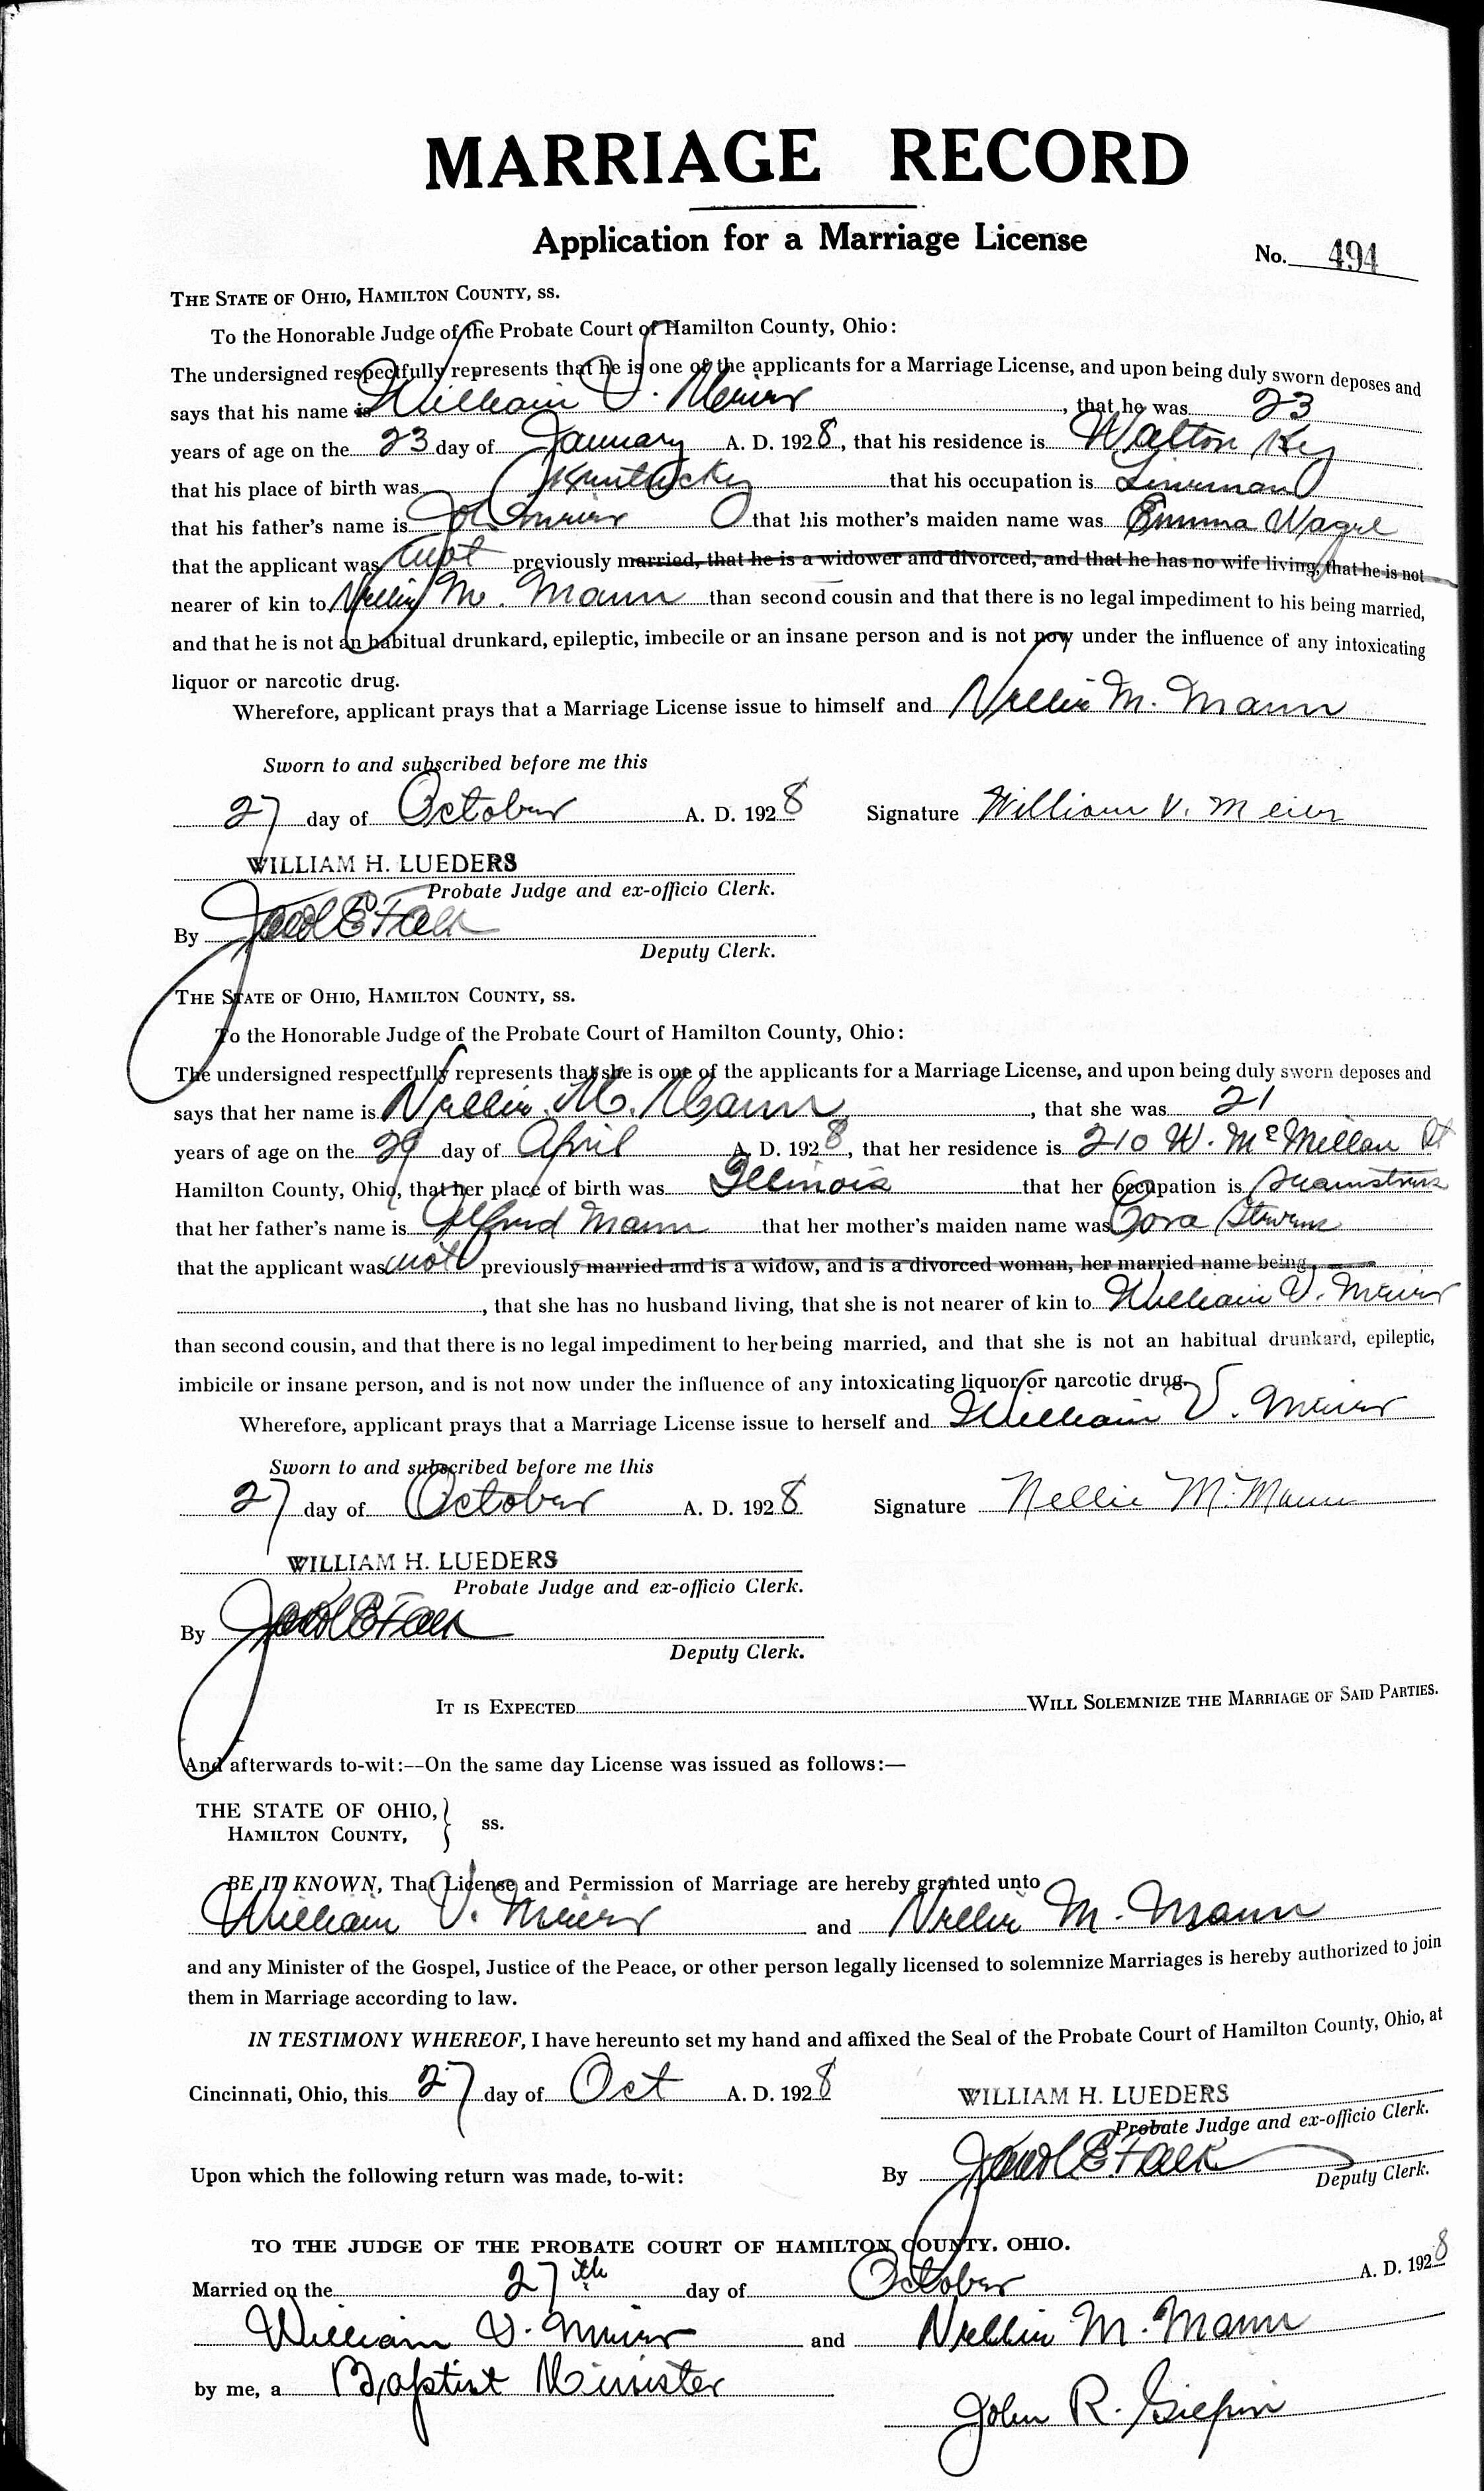 MARRIAGE RECORD
Application for a Marriage License
No. 494
THE STATE OF OHIO, HAMILTON COUNTY, SS.
To the Honorable Judge of the Probate Court of Hamilton County, Ohio:
The undersigned respectfully represents that he is one of the applicants for a Marriage License, and upon being duly sworn deposes and
says that his name is William V. Meier, that he was 23
years of age on the 23 day of January A. D. 1928, that his residence is Walton Ky
that his place of birth was Kentucky that his occupation is Lineman
that his father's name is Joh Meier that his mother's maiden name was Emma Wagel
that the applicant was not previously married, that he is a widower and divorced, and that he has no wife living, that he is not
nearer of kin to Nellie M. Mann than second cousin and that there is no legal impediment to his being married,
and that he is not an habitual drunkard, epileptic, imbecile or an insane person and is not now under the influence of any intoxicating
liquor or narcotic drug.
Wherefore, applicant prays that a Marriage License issue to himself and Nellie M. Mann
Sworn to and subscribed before me this
27 day of October A. D. 1928 Signature William V. Meier
WILLIAM H. LUEDERS
Probate Judge and ex-officio Clerk.
By Jacob E Falk
Deputy Clerk.
THE STATE OF OHIO, HAMILTON COUNTY, SS.
To the Honorable Judge of the Probate Court of Hamilton County, Ohio:
The undersigned respectfully represents that she is one of the applicants for a Marriage License, and upon being duly sworn deposes and
says that her name is Nellie M. Mann, that she was 21
years of age on the 29 day of April A. D. 1928, that her residence is 210 W. McMillan St
Hamilton County, Ohio, that her place of birth was Illinois that her occupation is Seamstress
that her father's name is Alfred Mann that her mother's maiden name was Cora Stevens
that the applicant was not previously married and is a widow, and is a divorced woman, her married name being
, that she has no husband living, that she is not nearer of kin to William V. Meier
than second cousin, and that there is no legal impediment to her being married, and that she is not an habitual drunkard, epileptic,
imbicile or insane person, and is not now under the influence of any intoxicating liquor or narcotic drug.
Wherefore, applicant prays that a Marriage License issue to herself and William V. Meier
Sworn to and subscribed before me this
27 day of October A. D. 1928 Signature Nellie M. Mann
WILLIAM H. LUEDERS
Probate Judge and ex-officio Clerk.
By Jacob E Falk
Deputy Clerk.
IT IS EXPECTED WILL SOLEMNIZE THE MARRIAGE OF SAID PARTIES.
And afterwards to-wit:--On the same day License was issued as follows:—
THE STATE OF OHIO,
HAMILTON COUNTY, } ss.
BE IT KNOWN, That License and Permission of Marriage are hereby granted unto
William V. Meier and Nellie M. Mann
and any Minister of the Gospel, Justice of the Peace, or other person legally licensed to solemnize Marriages is hereby authorized to join
them in Marriage according to law.
IN TESTIMONY WHEREOF, I have hereunto set my hand and affixed the Seal of the Probate Court of Hamilton County, Ohio, at
Cincinnati, Ohio, this 27 day of Oct A. D. 1928 WILLIAM H. LUEDERS
Probate Judge and ex-officio Clerk.
Upon which the following return was made, to-wit: By Jacob E Falk
Deputy Clerk.
TO THE JUDGE OF THE PROBATE COURT OF HAMILTON COUNTY. OHIO.
Married on the 27th day of October A. D. 1928
William V. Meier and Nellie M. Mann
by me, a Baptist Minister
John R. Gilpin